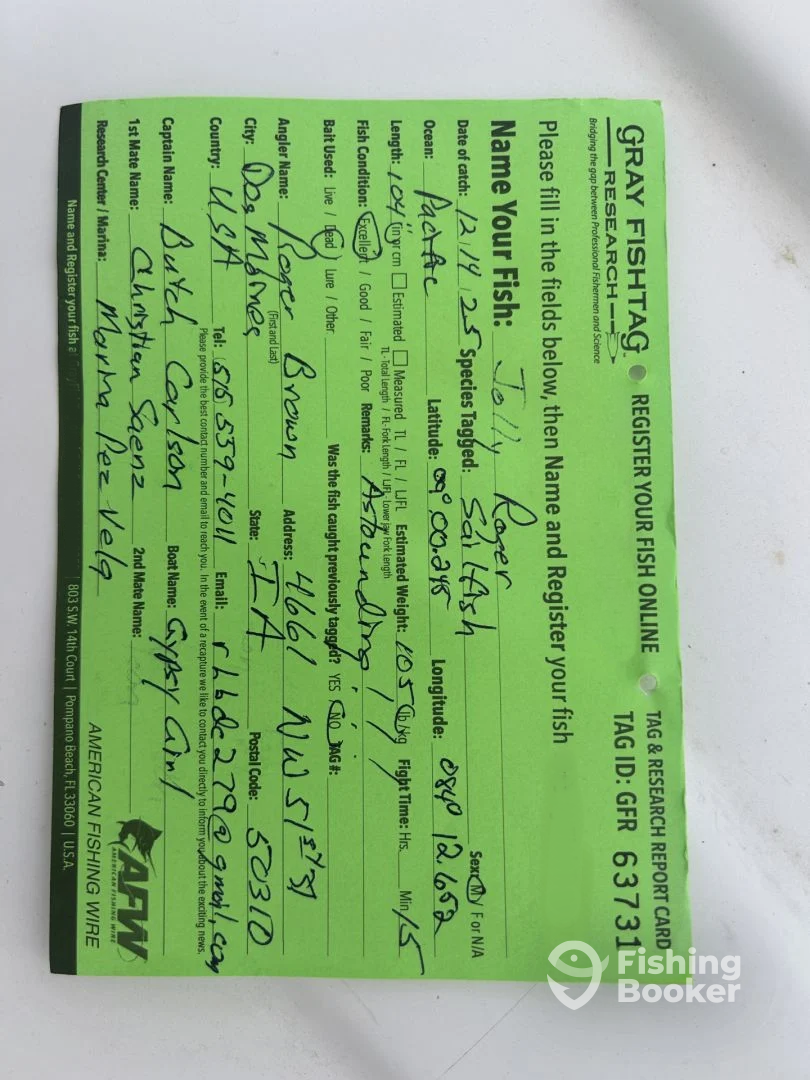 GRAY FISHTAG
RESEARCH
Bridging the gap between Professional Fishermen and Science
REGISTER YOUR FISH ONLINE
TAG & RESEARCH REPORT CARD
TAG ID: GFR 63731
Please fill in the fields below, then Name and Register your fish
Name Your Fish: Jolly Roger
Sex: M / F or N/A
Date of catch: 12/14/25 Species Tagged: Sailfish
Ocean: Pacific Latitude: 09°.00.245 Longitude: 084° 12.652
Length: 104" in or cm Estimated Measured TL / FL / LJFL Estimated Weight: 105 lb/kg Fight Time: Hrs. Min 15
TL - Total Length / FL - Fork Length / LJFL - Lower Jaw Fork Length
Fish Condition: Excellent / Good / Fair / Poor Remarks: Astounding!!!
Bait Used: Live / Dead / Lure / Other Was the fish caught previously tagged? YES / NO TAG#:
Angler Name: Roger Brown Address: 4661 NW 51st St
(First and Last)
City: Des Moines State: IA Postal Code: 50310
Country: USA Tel: 515 559-4011 Email: rhbdc279@gmail.com
Please provide the best contact number and email to reach you. In the event of a recapture we like to contact you directly to inform you about the exciting news.
Captain Name: Butch Carlson Boat Name: Gypsy Girl
1st Mate Name: Christian Saenz 2nd Mate Name:
Research Center / Marina: Marina Pez Vela
AMERICAN FISHING WIRE
AFW
AMERICAN FISHING WIRE
Name and Register your fish
803 S.W. 14th Court | Pompano Beach, FL 33060 | U.S.A.
Fishing
Booker